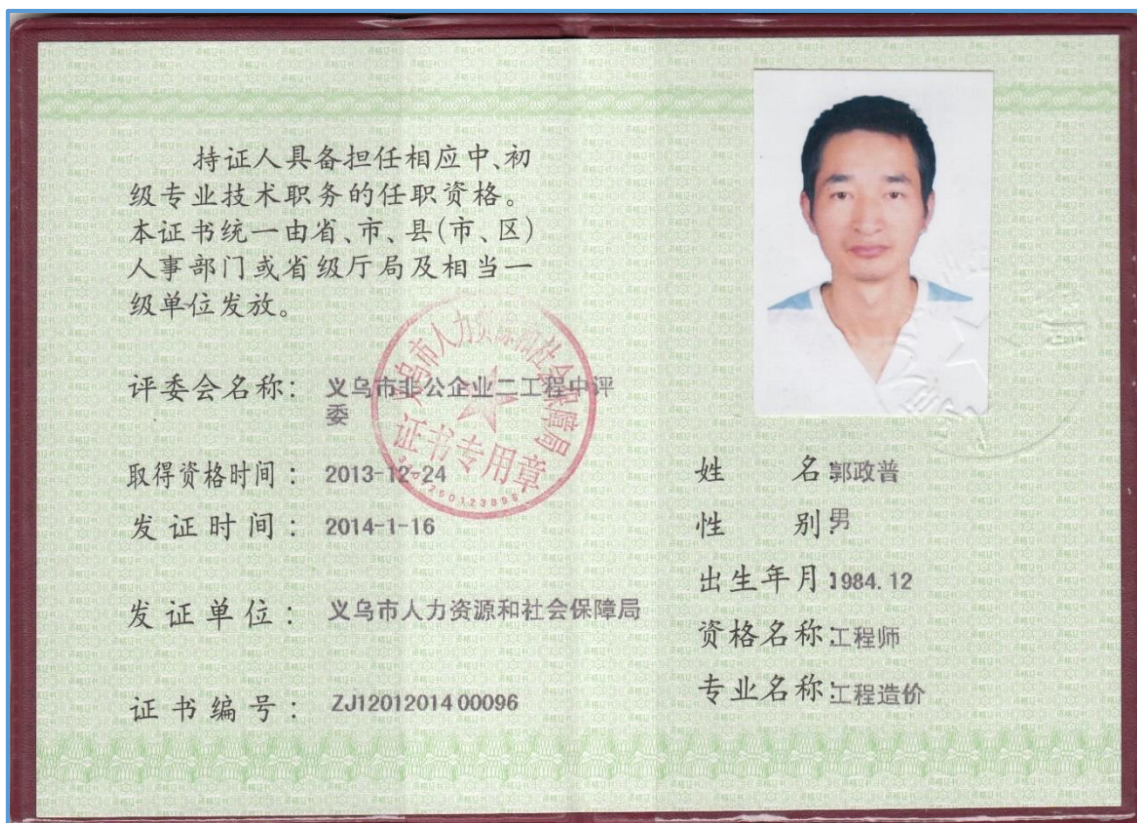 持证人具备担任相应中、初
级专业技术职务的任职资格。
本证书统一由省、市、县(市、区)
人事部门或省级厅局及相当一
级单位发放。
评委会名称: 义乌市非公企业二工程中评
委
取得资格时间: 2013-12-24
发证时间: 2014-1-16
发证单位: 义乌市人力资源和社会保障局
证书编号: ZJ12012014 00096
义乌市人力资源和社会保障局
证书专用章
姓名:郭政普
性别:男
出生年月:1984.12
资格名称:工程师
专业名称:工程造价